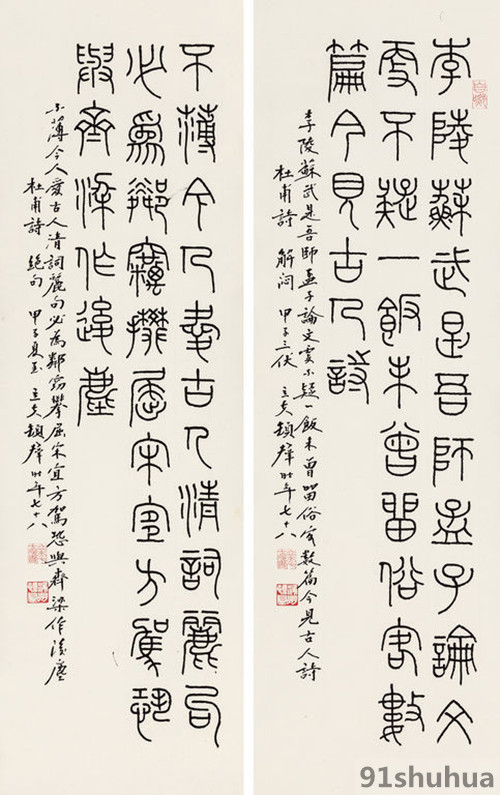 李陵蘇武是吾師孟子論文
更不疑一飯未曾留俗客數
篇今見古人詩
李陵蘇武是吾師孟子論文雲不疑一飯未曾留俗客數篇今見古人詩
杜甫詩 解悶 甲子三伏 时年七十八
不薄今人愛古人清詞麗句
必為鄰竊攀屈宋宜方駕恐
與齊梁作後塵
不薄今人愛古人清詞麗句必為鄰竊攀屈宋宜方駕恐與齊梁作後塵
杜甫詩 絕句 甲子夏至 时年七十八
91shuhua